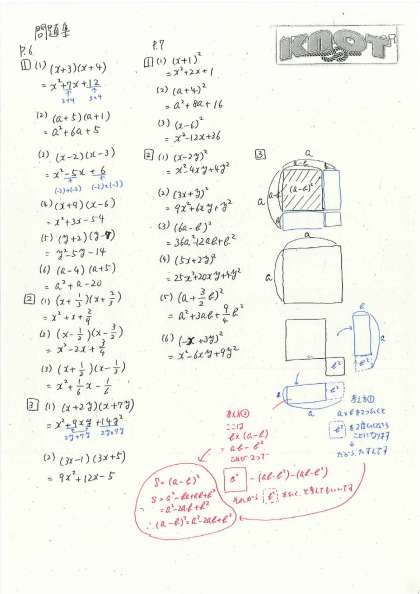 問題集
KNOT
P.6
1 (1) (x+3)(x+4)
= x²+7x+12
3+4 3×4
(2) (a+5)(a+1)
= a²+6a+5
(3) (x-2)(x-3)
= x²-5x+6
(-2)+(-3) (-2)×(-3)
(4) (x+9)(x-6)
= x²+3x-54
(5) (y+2)(y-7)
= y²-5y-14
(6) (a-4)(a+5)
= a²+a-20
2 (1) (x+1/3)(x+2/3)
= x²+x+2/9
(2) (x-1/2)(x-3/2)
= x²-2x+3/4
(3) (x+1/2)(x-1/3)
= x²+1/6x-1/6
3 (1) (x+2y)(x+7y)
= x²+9xy+14y²
2y+7y 2y×7y
(2) (3x-1)(3x+5)
= 9x²+12x-5
P.7
1 (1) (x+1)²
= x²+2x+1
(2) (a+4)²
= a²+8a+16
(3) (x-6)²
= x²-12x+36
2 (1) (x-2y)²
= x²-4xy+4y²
(2) (3x+y)²
= 9x²+6xy+y²
(3) (6a-b)²
= 36a²-12ab+b²
(4) (5x+2y)²
= 25x²+20xy+4y²
(5) (a+3/2b)²
= a²+3ab+9/4b²
(6) (-x+3y)²
= x²-6xy+9y²
3
a
a-b
b
a
a-b
(a-b)²
b
a
a
b
a
b²
b²
b
b²
a
ここは
b×(a-b)
= ab-b²
a² -(ab-b²)-(ab-b²)
b²
b²
S=(a-b)²
S=a²-ba+ab+b²
=a²-2ab+b²
∴(a-b)²=a²-2ab+b²